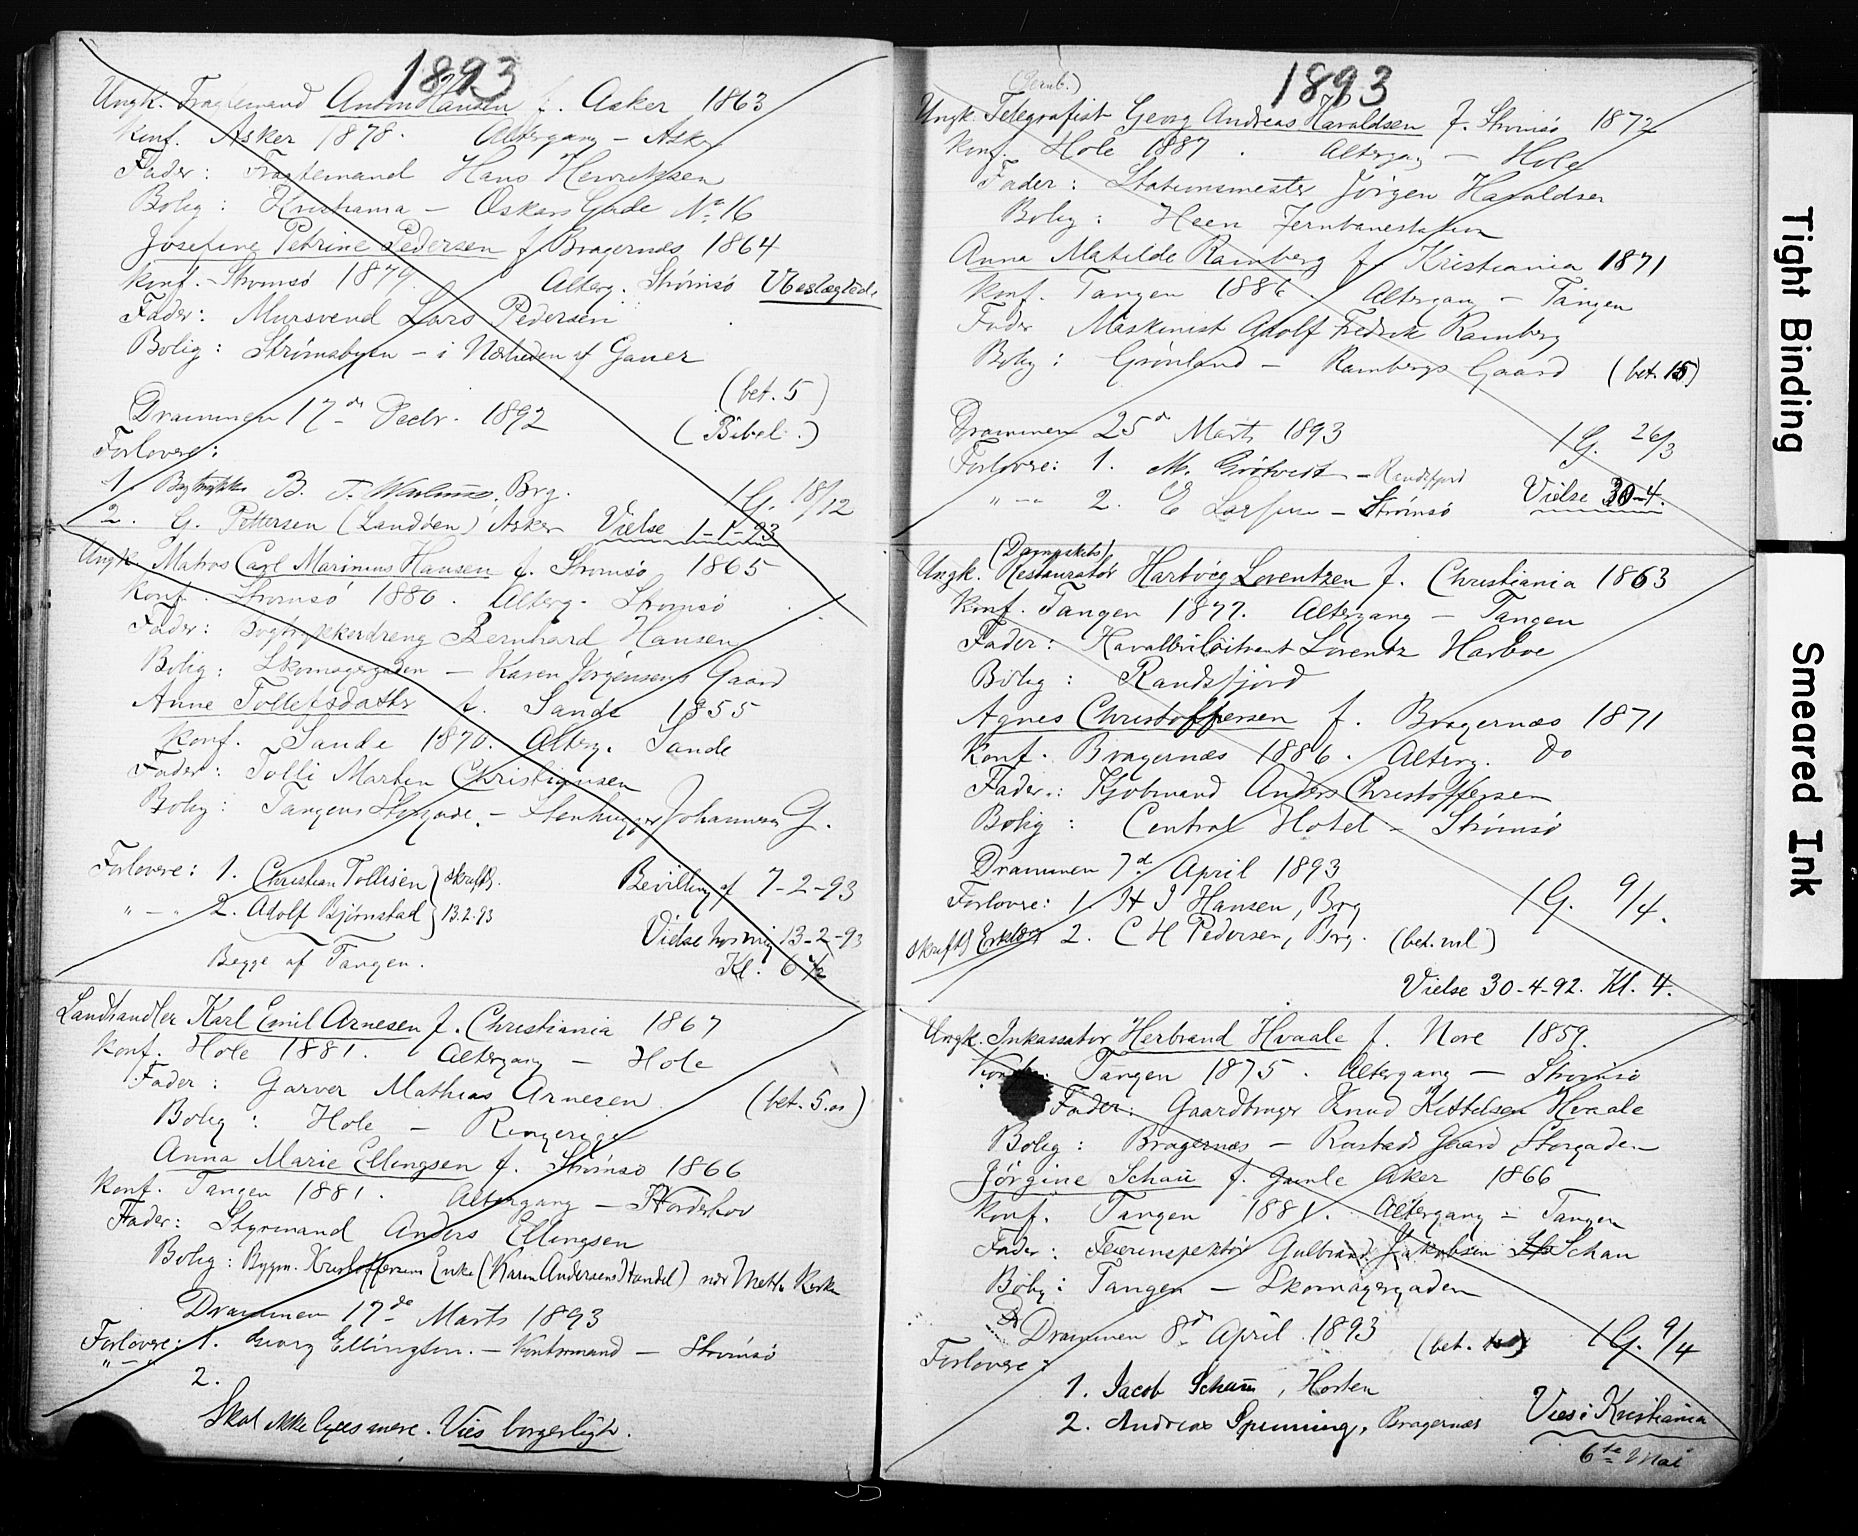 1893
Ungk. Fragtemand Anton Hansen f. Asker 1863
Konf. Asker 1878. Altergang – Asker
Fader: Fragtemand Hans Henriksen
Bolig: Kristiania – Oskars Gade No 16
Josefine Petrine Pedersen f. Bragernæs 1864
Konf. Strømsö 1879. Alterg. Strømsö Ubeslægtede
Fader: Mursvend Lars Pedersen
Bolig: Strømsbyen – i Nærheden af Gauer
(bet. 5)
Drammen 17de Decbr. 1892 (Bibel.)
Forlovere:
1. B. T. Brg. 1 G. 18/12
2. G. Pettersen (Landöen) Asker Vielse 1-1-93
Ungk. Matros Carl Marinius Hansen f. Strömsö 1865
Konf. Strömsö 1880. Alterg. Strömsö
Fader: Bogtrykkerdreng Bernhard Hansen
Bolig: Skomagergaden – Karen Jörgensens Gaard
Anne Tollefsdatter f. Sande 1855
Konf. Sande 1870. Alterg. Sande
Fader: Tolli Marten Christiansen
Bolig: Tangens Storgade. – Stenhugger Johannesen G.
Forlovere: 1. Christian Tollisen } skriftl.
" – " 2. Adolf Bjørnstad } 13.2.93
Bevilling af 7-2-93
Begge af Tangen.
Vielse hos mig 13-2-93
Kl. 6 1/2
Landhandler Karl Emil Arnesen f. Christiania 1867
Konf. Hole 1881. Altergang – Hole
Fader: Garver Mathias Arnesen
Bolig: Hole – Ringerige (bet. 5.00)
Anna Marie Ellingsen f. Strömsö 1866
Konf. Tangen 1881. Altergang – Norderhov
Fader: Styrmand Anders Ellingsen
Bolig: Bygm. Kristoffersens Enke (Karen Andersens Handel) nær Metth. Kirke
Drammen 17de Marts 1893
Forlovere: 1. Georg Ellingsen. – Kontormand – Strömsö
" – " 2.
Skal ikke lyses mere. Vies borgerligt.
1893
Ungk. Telegrafist Georg Andreas Haraldsen f. Strömsö 1872
Konf. Hole 1887. Altergang – Hole
Fader: Stationsmester Jörgen Haraldsen
Bolig: Heen Jernbanestation
Anna Matilde Ramberg f. Kristiania 1871
Konf. Tangen 1886. Altergang – Tangen
Fader Maskinist Adolf Fredrik Ramberg
Bolig: Grønland – Rambergs Gaard (bet. 15)
Drammen 25de Marts 1893 1 G. 26/3
Forlovere: 1. M. Grötvedt – Randsfjord
" – " 2. E Larsen – Strømsö Vielse 30-4.
(Dampskibs)
Ungk. Restauratör Hartvig Lorentzen f. Christiania 1863
Konf. Tangen 1877. Altergang – Tangen
Fader: Kavalleriløitnant Lorentz Harboe
Bolig: Randsfjord
Agnes Christoffersen f. Bragernæs 1871
Konf. Bragernæs 1886. Alterg. do
Fader: Kjöbmand Anders Christoffersen
Bolig: Central Hotel – Strømsö
Drammen 7d. April 1893
Forlovere: 1. H J Hansen, Brg 1 G. 9/4.
skriftl Erklær 2. C H Pedersen, Brg. (bet. vel)
Vielse 30-4-92. Kl. 4.
Ungk. Inkassator Herbrand Hvaale f. Nore 1859.
Konf. Tangen 1875. Altergang – Strömsö
Fader: Gaardbruger Knud Kittelsen Hvaale
Bolig: Bragernæs – Rustads Gaard, Storgaden
Jörgine Schau f. Gamle Aker 1866
Konf. Tangen 1881. Altergang – Tangen
Fader: Feierinspektör Gulbrand Jakobsen Schau
Bolig: Tangen – Skomagergaden
Drammen 8de April 1893 (bet. 4) 1 G. 9/4
Forlovere:
1. Jacob Schau, Horten
2. Andreas Spenning, Bragernæs Vies i Kristiania
6te Mai
Tight Binding
Smeared Ink